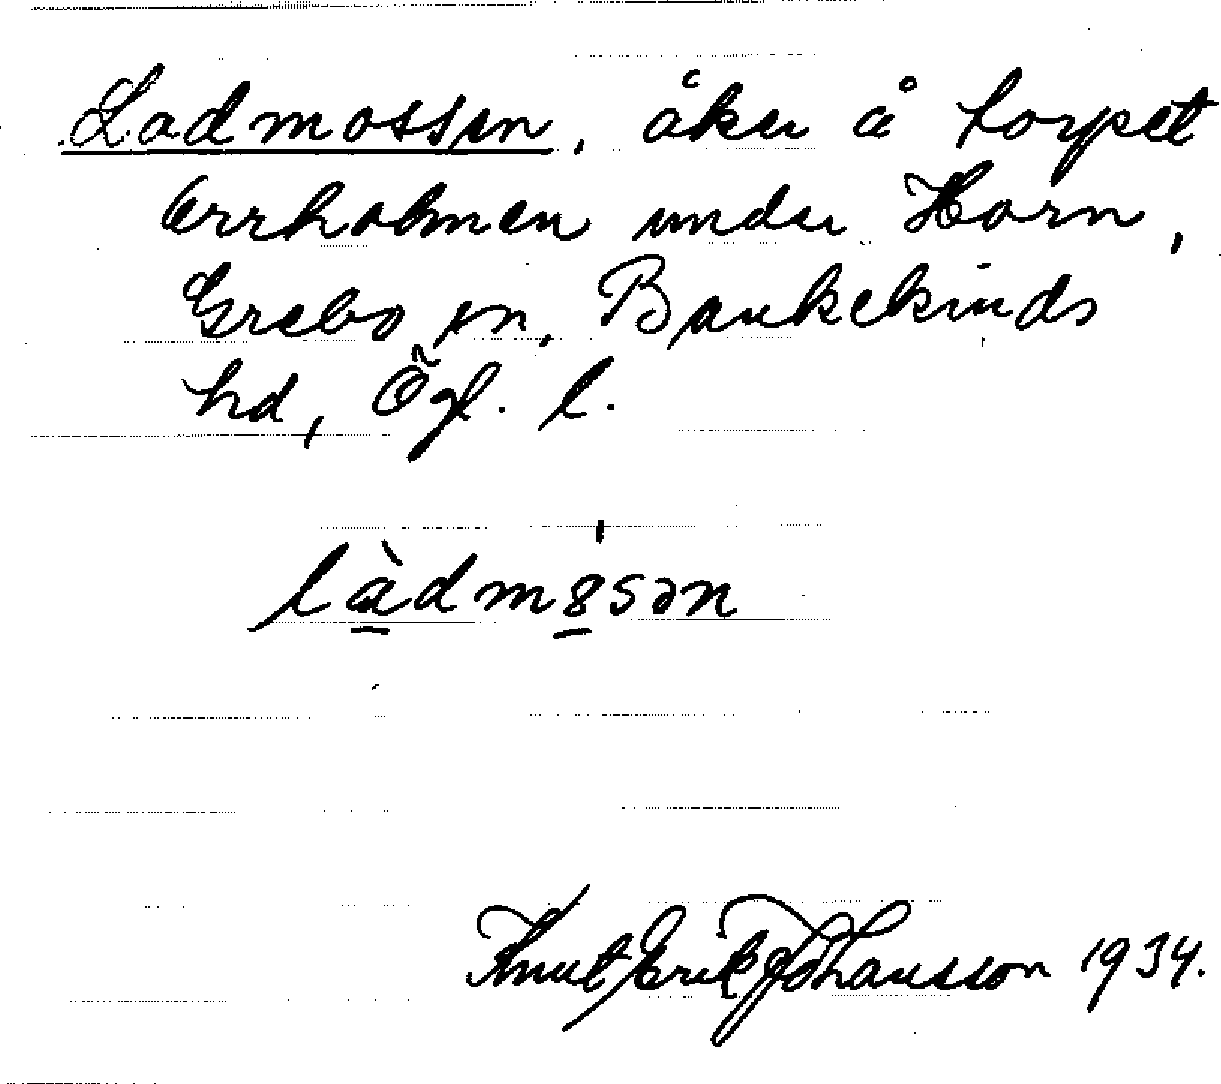 Ladmossen, åker å torpet
Orrholmen under Horn,
Grebo sn, Bankekinds
hd, Ögl. l.
làdmɵsən
Knut Erik Johansson 1934.